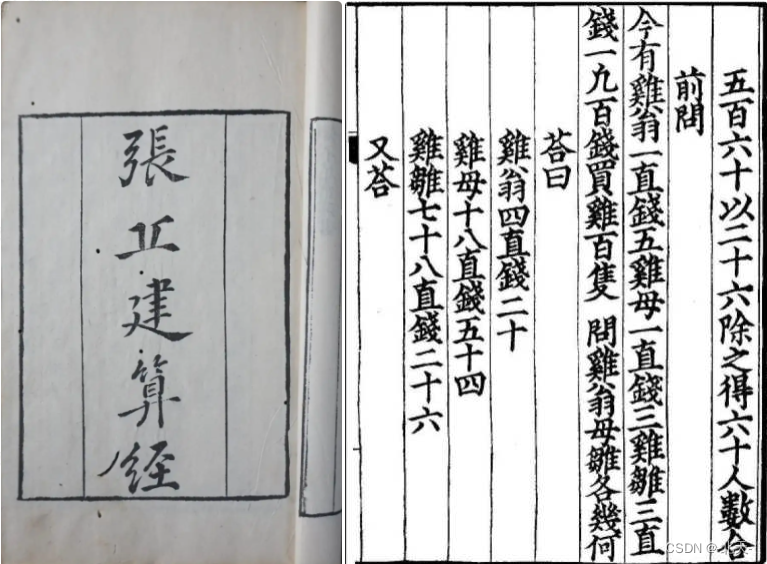 張丘建算経
五百六十以二十六除之得六十人數合
前問
今有雞翁一直錢五雞母一直錢三雞雛三直
錢一凡百錢買雞百隻 問雞翁母雛各幾何
荅曰
雞翁四直錢二十
雞母十八直錢五十四
雞雛七十八直錢二十六
又荅
CSDN